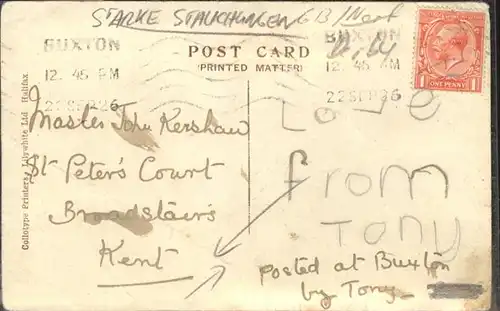 STARKE STAUCHUNGEN GB/
BUXTON
12. 45 PM
22 SEP 26
POST CARD
(PRINTED MATTER)
BUXTON
12. 45 PM
22 SEP 26
ONE PENNY
Collotype Printers, Lilywhite Ltd Halifax.
Master John Kershaw
St Peter's Court
Broadstairs
Kent
Love
from
Tony
posted at Buxton
by Tony